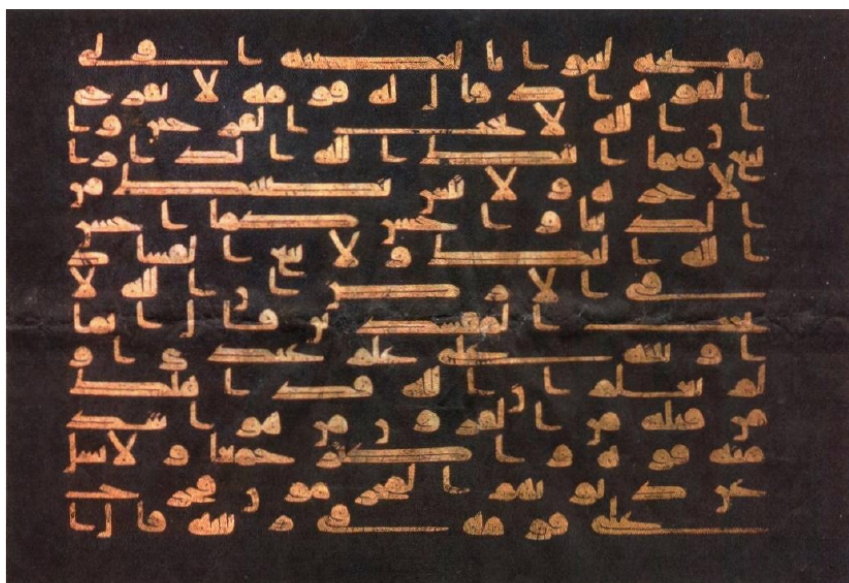 مفتحه لتنوا بالعصبه اولى
القوه اذ قال له قومه لا تفرح
ان الله لا يحب الفرحين وا
بتغ فيما اتيك الله الدار ا
لاخره ولا تنس نصيبك من
الدنيا واحسن كما احسن
الله اليك ولا تبغ الفساد
فى الارض ان الله لا
يحب المفسدين قال انما
اوتيته على علم عندى او
لم يعلم ان الله قد اهلك
من قبله من القرون من هو اشد
منه قوه واكثر جمعا ولا يسل
عن ذنوبهم المجرمون فخرج
على قومه فى زينته قال ا